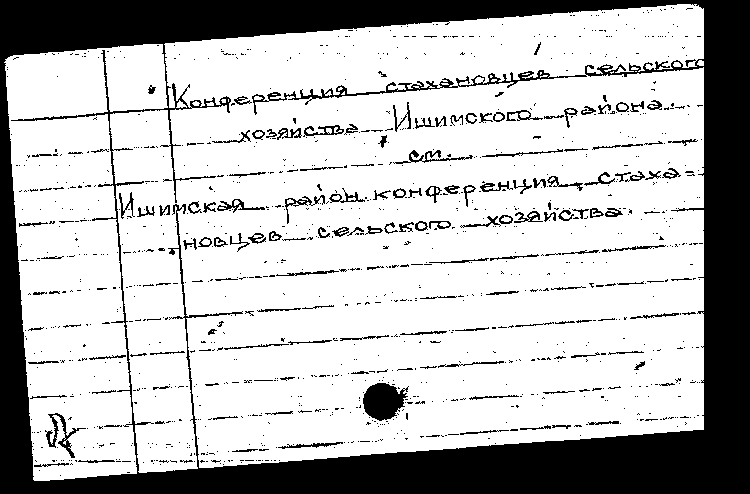 Конференция стахановцев сельского
хозяйства Ишимского района.
см.
Ишимская район. конференция стаха=
новцев сельского хозяйства.